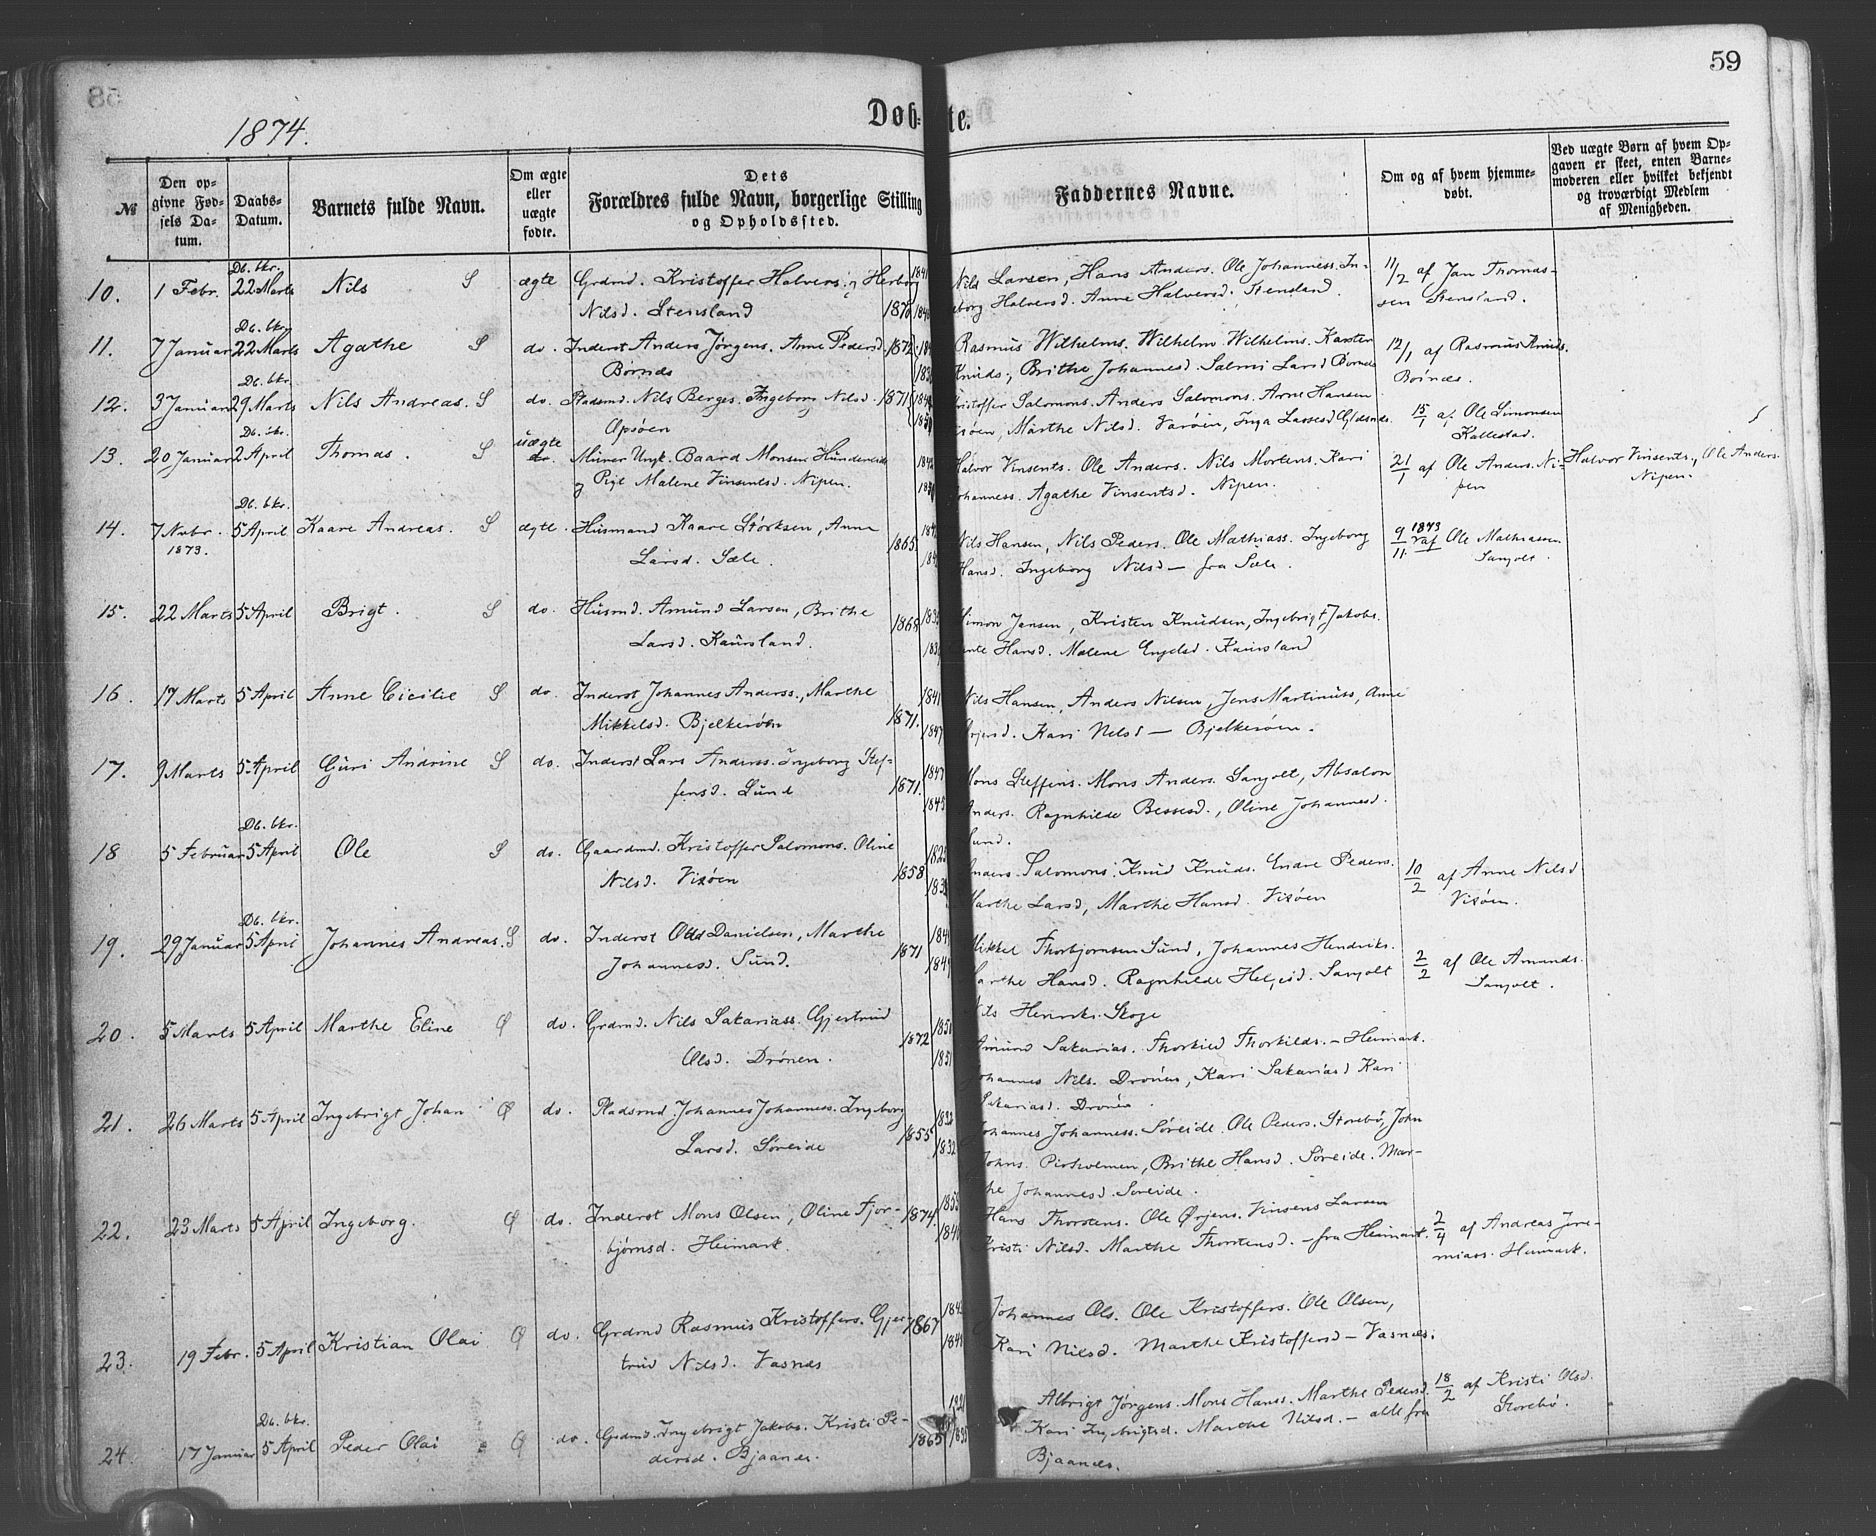 59
1874.
Døb-
te.
№
Den op-
givne Fød-
sels Da-
tum.
Daabs-
Datum.
Barnets fulde Navn.
Om ægte
eller
uægte
fødte.
Dets
Forældres fulde Navn, borgerlige Stilling
og Opholdssted.
Faddernes Navne.
Om og af hvem hjemme-
døbt.
Ved uægte Børn af hvem Op-
gaven er skeet, enten Barne-
moderen eller hvilket bekjendt
og troværdigt Medlem
af Menigheden.
Db. bkr.
10. 1 Febr. 22 Marts Nils S ægte Grdmd. Kristoffer Halvers. og Herborg Larsen, Hans Anders. Ole Johanness. In- 11/2 af Jan Thomas-
Nilsd. Stensland 1870 borg Halversd. Anne Halversd. Stensland. sen Stensland.
Db. bkr.
11. 7 Januar 22 Marts Agathe S do. Inderst Anders Jørgens. Anne Pedersd. 1872 Rasmus Wilhelms. Wilhelm Wilhelms. Karsten 12/1 af Rasmus Knuds.
Børnæs Knuds., Brithe Johannesd. Salmi Larsd Børnæs Børnæs.
Db. bkr.
12. 3 Januar 29 Marts Nils Andreas. S do. Pladsmd. Nils Berges. Ingeborg Nilsd. 1871 Salomons. Anders Salomons. Arne Hansen
Opsøen Marthe Nilsd. Inga Lassesd 15/1 af Ole Simonsen
Kallestad.
Db. bkr.
13. 20 Januar 2 April Thomas. S uægte do. Minér Ungk. Baard Monsen Hundereide Halvor Vinsents. Ole Anders. Nils Mortens. Kari 21/1 af Ole Anders. Ni- Halvor Vinsents., Ole Anders.
og Pige Malene Vinsentsd. Nipen. Johanness. Agathe Vinsentsd. Nipen. pen Nipen.
Db. bkr.
14. 7 Nvbr. 5 April Kaare Andreas. S ægte. Husmand Kaare Størksen, Anne Nils Hansen, Nils Peders. Ole Mathiass. Ingeborg 9/11 1873 af Ole Mathiassen
1873. Larsd. Sæle. 1865 Hansd. Ingeborg Nilsd — fra Sæle. Sangolt
15. 22 Marts 5 April Brigt. S do. Husmd. Amund Larsen, Brithe 1868 Simon Jansen, Kristen Knudsen, Ingebrigt Jakobs.
Larsd. Kaursland. Hansd. Malene Engelsd. Kaursland
16. 17 Marts 5 April Anne Cicilie S do. Inderst Johannes Anderss., Marthe 1841 Nils Hansen, Anders Nilsen, Jens Martinuss, Anne
Mikkelsd. Bjelkerøen 1871. 1847 Kari Nilsd — Bjelkerøen.
17. 9 Marts 5 April Guri Andrine S do. Inderst Lars Anderss. Ingeborg Stef- 1847 Mons Steffens. Mons Anders. Sangolt, Absalon
fensd. Lund 1871. 1845 Anders. Ragnhilde Bessesd., Oline Johannesd.
Lund.
Db. bkr.
18 5 Februar 5 April Ole S do. Gaardmd. Kristoffer Salomons. Oline Anders. Salomons. Knud Knuds. Endre Peders. 10/2 af Anne Nilsd
Nilsd. Visøen 1858 Marthe Larsd, Marthe Hansd. Visøen Visøen.
Db. bkr.
19. 29 Januar 5 April Johannes Andreas. S do. Inderst Odd Danielsen, Marthe Mikkel Thorbjornsen Sund, Johannes Hendriks. 2/2 af Ole Amunds.
Johannesd. Sund. 1871 Marthe Hansd. Ragnhilde Helgesd. Sangolt Sangolt.
Nils Henriks. Skoge
20. 5 Marts 5 April Marthe Eline Ø do. Grdmd. Nils Sakariass. Gjertrud 1850 Amund Sakarias. Thorkild Thorkilds. — Heimark.
Olsd. Drønen. 1872 1851 Johannes Nils. Drønen, Kari Sakariasd Kari
Sakariasd. Drønen.
21. 26 Marts 5 April Ingebrigt Johan Ø do. Pladsmd. Johannes Johanness. Ingeborg 1832 Johannes Johanness. Søreide. Ole Peders. Storebø, John
Larsd. Søreide 1855 1832 Johns. Pirholmen, Brithe Hansd. Søreide. Mar-
the Johannesd. Søreide.
22. 23 Marts 5 April Ingeborg. Ø do. Inderst Mons Olsen, Oline Tjor- 1874. Hans Thorstens. Ole Ørjens. Vinsens Larsen 2/4 af Andreas Jre-
bjørnsd. Heimark. Kristi Nilsd. Marthe Thorstensd. — fra Heimark. miass. Heimark.
23. 19 Febr. 5 April Kristian Olai Ø do. Grdmd Rasmus Kristoffers. Gjer- 1867 Johannes Ols. Ole Kristoffers. Ole Olsen,
trud Nilsd. Vasnæs Kari Nilsd. Marthe Kristoffersd — Vasnæs.
Db. bkr.
24. 17 Januar 5 April Peder Olai Ø do. Grdmd. Ingebrigt Jakobs. Kristi Pe- Albrigt Jørgens. Mons Hans. Marthe Pedersd. 18/2 af Kristi Olsd.
dersd. Bjaanæs. 1865 1835 Kari Ingebrigtsd. Marthe Nilsd. — alle fra Storebø.
Bjaanæs.